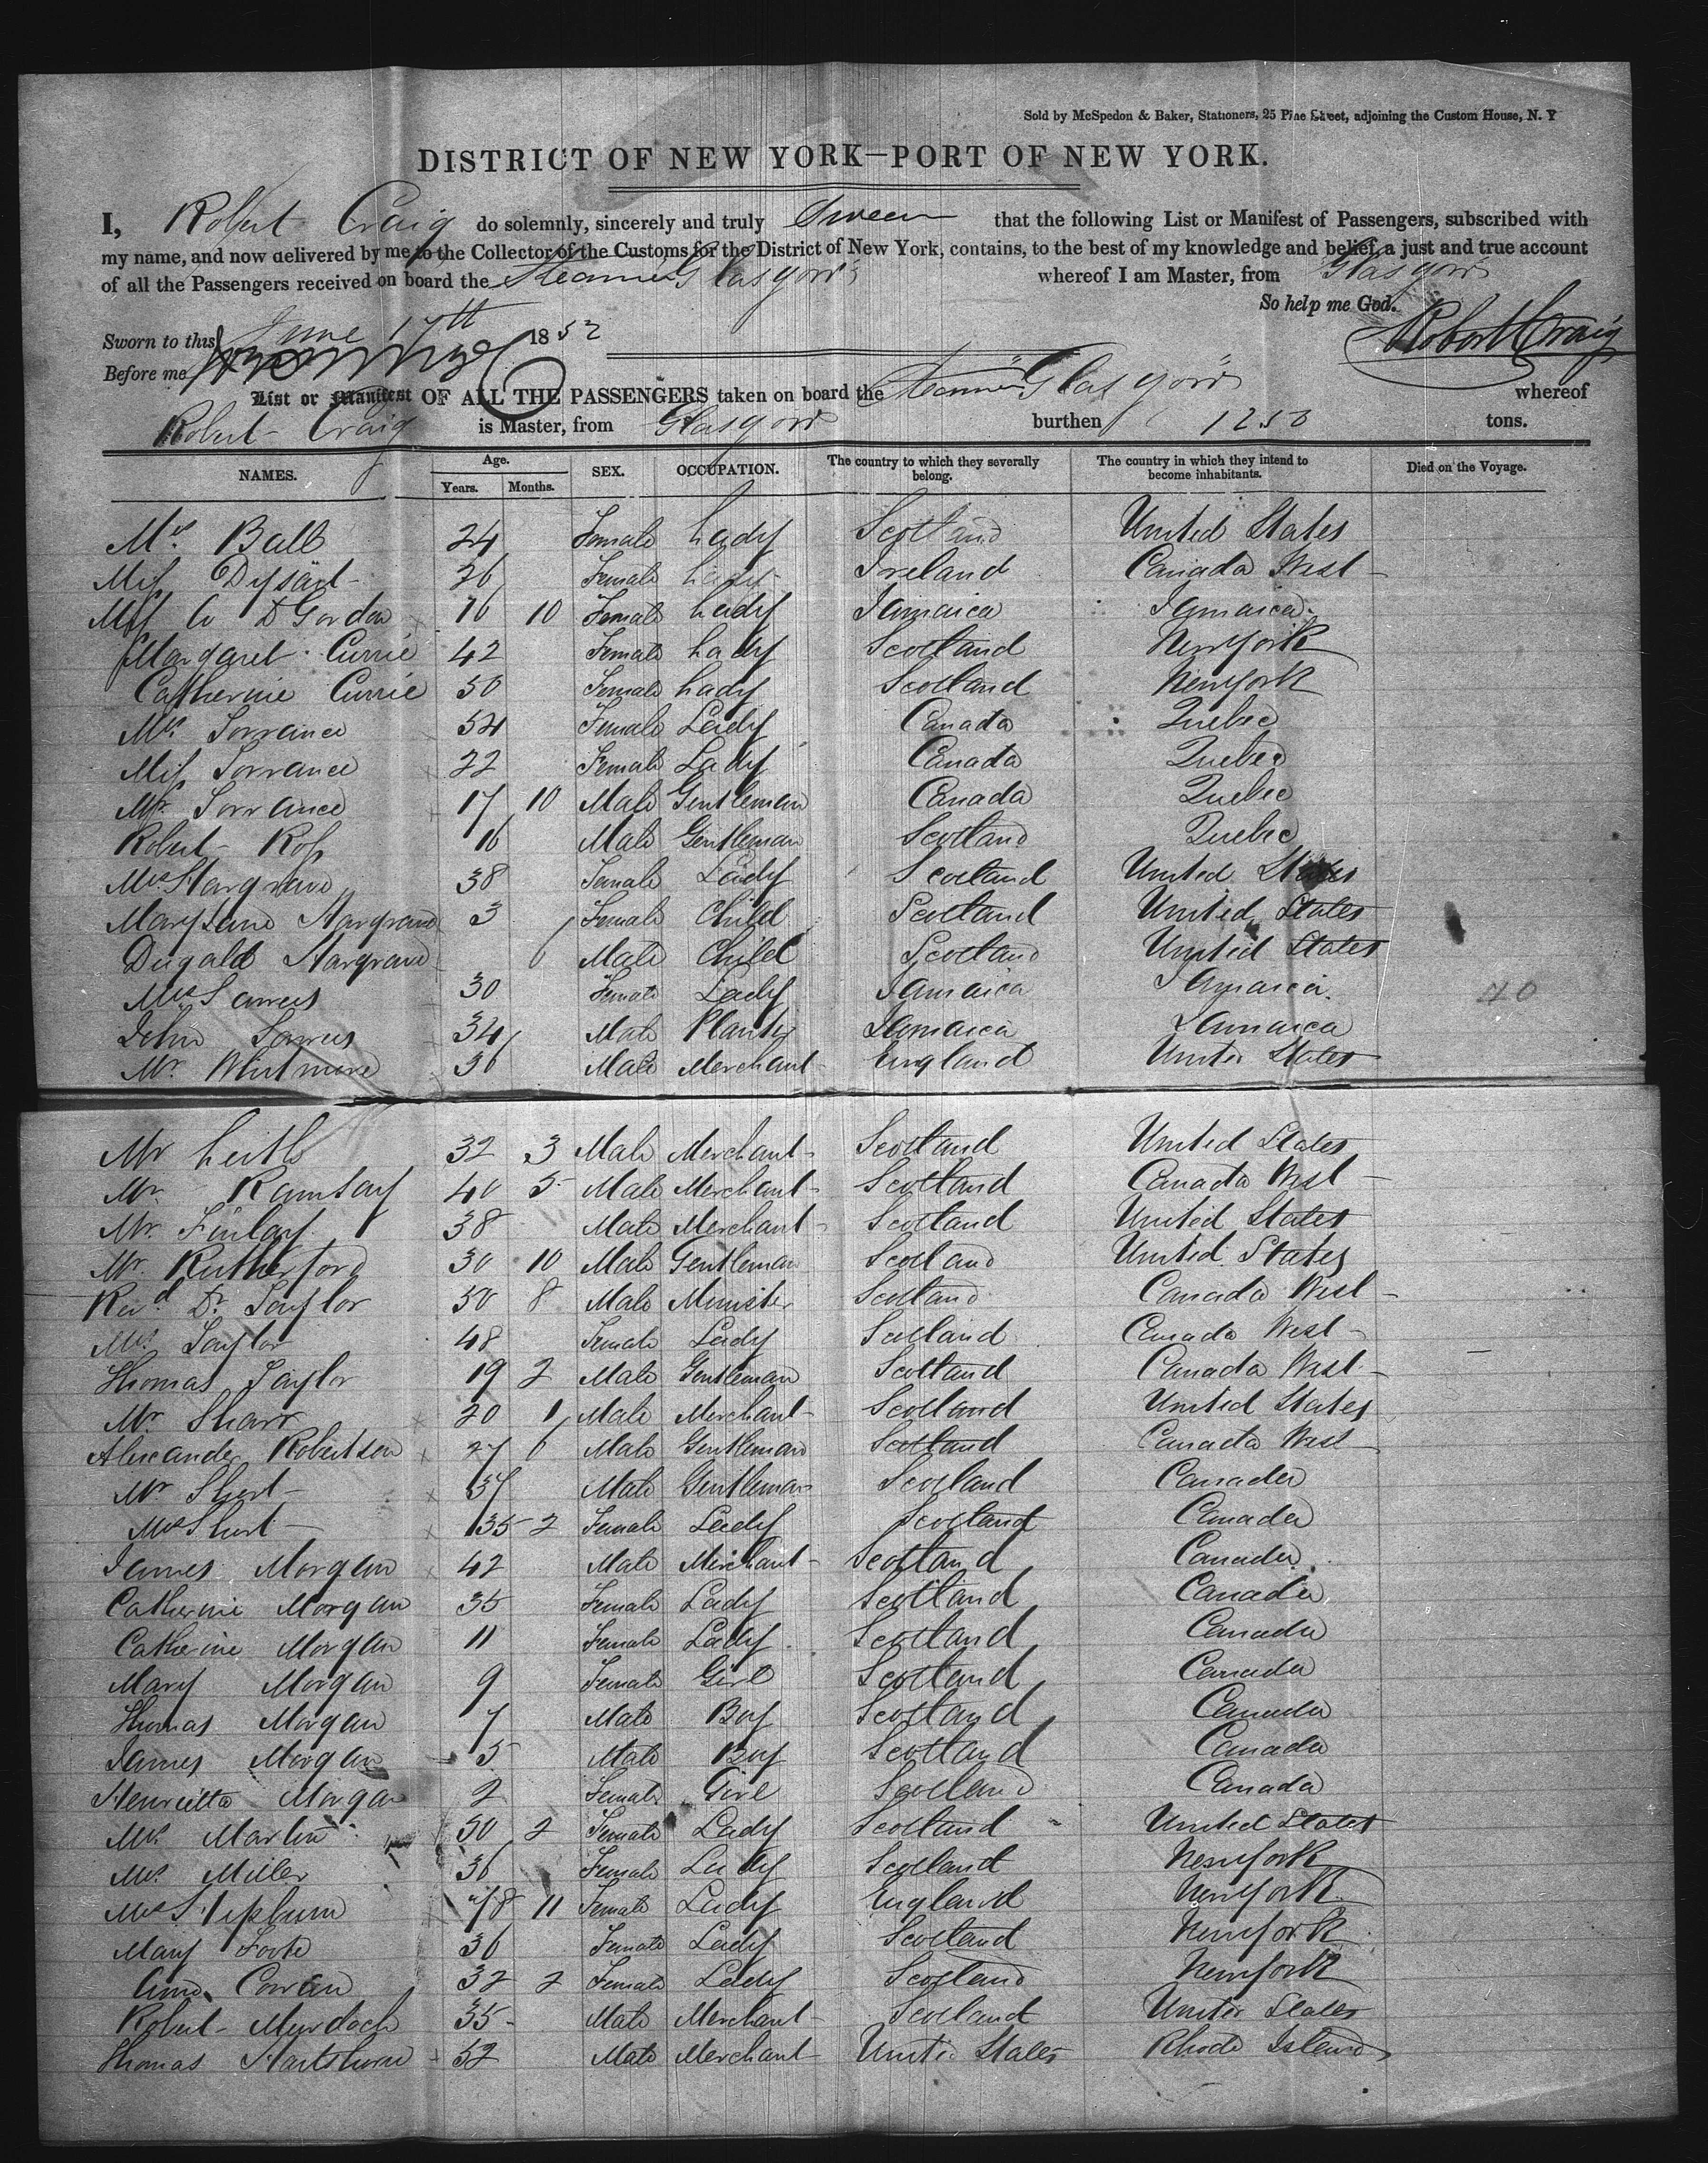 Sold by McSpedon & Baker, Stationers, 25 Pine Street, adjoining the Custom House, N. Y
DISTRICT OF NEW YORK—PORT OF NEW YORK.
I, Robert Craig do solemnly, sincerely and truly Swear that the following List or Manifest of Passengers, subscribed with
my name, and now delivered by me to the Collector of the Customs for the District of New York, contains, to the best of my knowledge and belief, a just and true account
of all the Passengers received on board the Steamer Glasgow whereof I am Master, from Glasgow
So help me God.
Sworn to this June 17th 1852 Robert Craig
Before me
List or Manifest OF ALL THE PASSENGERS taken on board the Steamer "Glasgow" whereof
Robert Craig is Master, from Glasgow burthen 1250 tons.
NAMES. Age. Years. Months. SEX. OCCUPATION. The country to which they severally belong. The country in which they intend to become inhabitants. Died on the Voyage.
Mrs. Ball 24 Female Lady Scotland United States
Miss Dysart 26 Female Lady Ireland Canada West
Miss D Gordon 16 10 Female Lady Jamaica Jamaica
Margaret Currie 42 Female Lady Scotland New York
Catherine Currie 50 Female Lady Scotland New York
Mrs Torrance 54 Female Lady Canada Quebec
Miss Torrance 22 Female Lady Canada Quebec
Mr. Torrance 17 10 Male Gentleman Canada Quebec
Robert Ross 16 Male Gentleman Scotland Quebec
Mrs Hargrave 38 Female Lady Scotland United States
Mary Jane Hargrave 3 Female Child Scotland United States
Dugald Hargrave 6 Male Child Scotland United States
Mrs 30 Female Lady Jamaica Jamaica 40
John 34 Male Planter Jamaica Jamaica
Mr. Whitmore 36 Male Merchant England United States
Mr Leith 32 3 Male Merchant Scotland United States
Mr. Ramsay 40 5 Male Merchant Scotland Canada West
Mr. Finlay 38 Male Merchant Scotland United States
Mr. Rutherford 30 10 Male Gentleman Scotland United States
Revd. Dr. Taylor 50 8 Male Minister Scotland Canada West
Mrs. Taylor 48 Female Lady Scotland Canada West
Thomas Taylor 19 2 Male Gentleman Scotland Canada West
Mr. 20 1 Male Merchant Scotland United States
Alexander Robertson 27 6 Male Gentleman Scotland Canada West
Mr Short 37 Male Gentleman Scotland Canada
Mrs Short 35 2 Female Lady Scotland Canada
James Morgan 42 Male Merchant Scotland Canada
Catherine Morgan 35 Female Lady Scotland Canada
Catherine Morgan 11 Female Lady Scotland Canada
Mary Morgan 9 Female Girl Scotland Canada
Thomas Morgan 7 Male Boy Scotland Canada
James Morgan 5 Male Boy Scotland Canada
Henrietta Morgan 2 Female Girl Scotland Canada
Mrs. Martin 50 2 Female Lady Scotland United States
Mrs. Miller 36 Female Lady Scotland New York
Mrs Hepburn 48 11 Female Lady England New York
Mary Foote 36 Female Lady Scotland New York
Ann Cowan 32 2 Female Lady Scotland New York
Robert Murdoch 35 Male Merchant Scotland United States
Thomas Hartshorn 52 Male Merchant United States Rhode Island